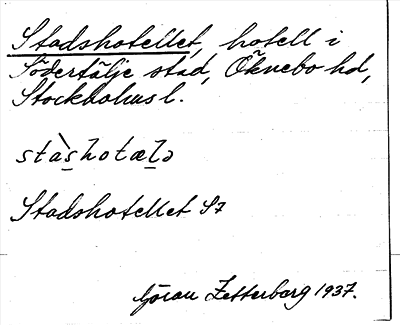 Stadshotellet, hotell i
Södertälje stad, Öknebo hd,
Stockholms l.
stàshotælə
Stadshotellet S7
Göran Zetterberg 1937.